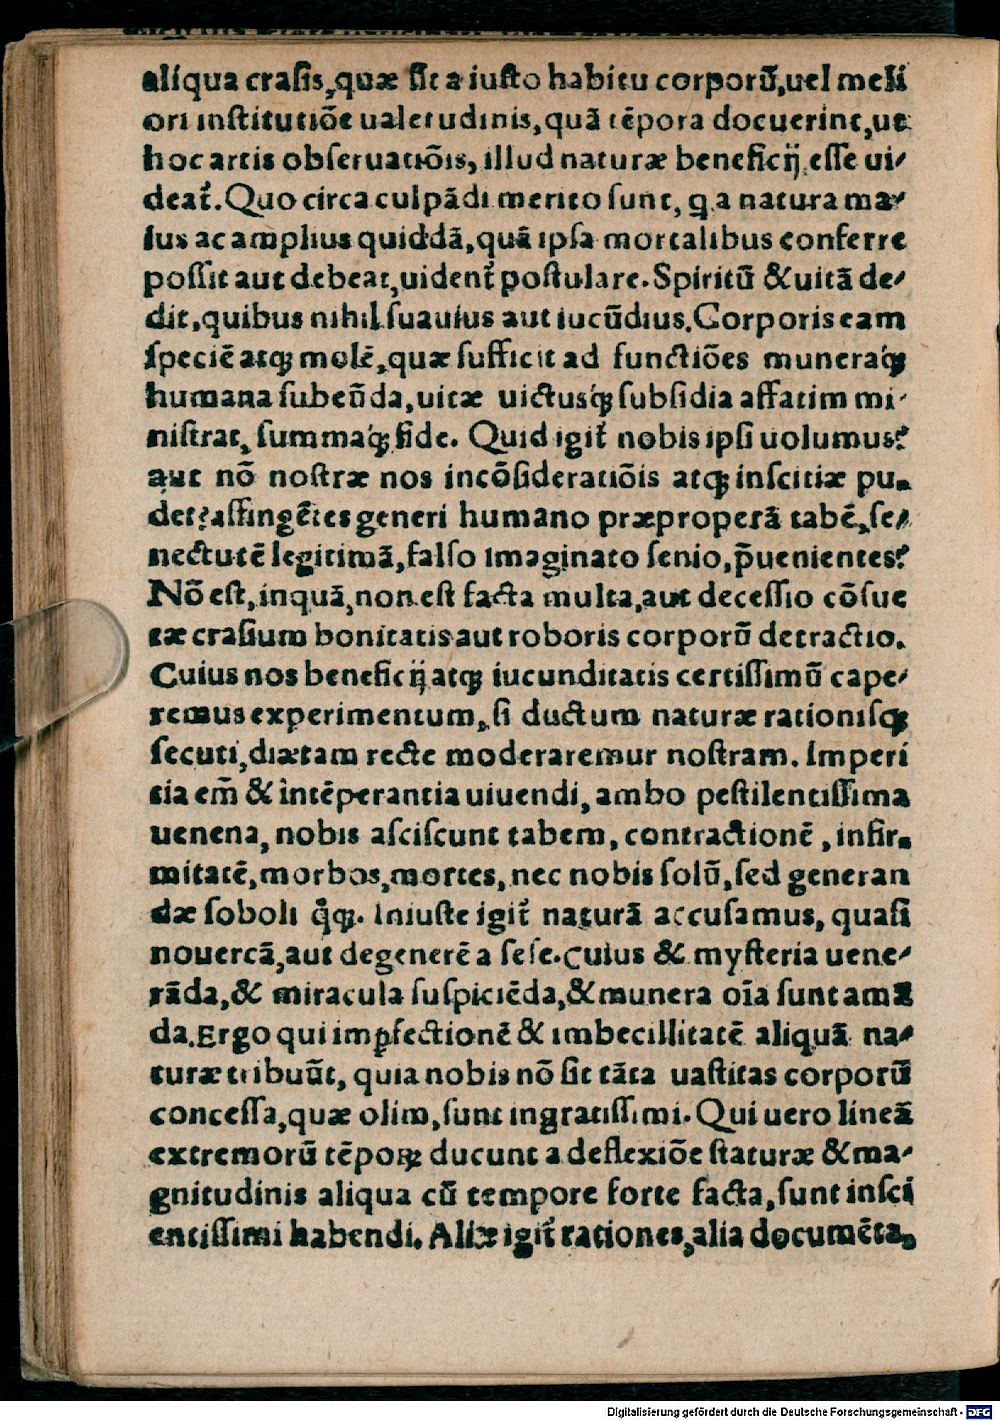 aliqua crasis, quæ sit a iusto habitu corporū, uel meli
ori institutiōe ualetudinis, quā tēpora docuerint, ut
hoc artis obseruatiōis, illud naturæ beneficij esse ui⸗
deat᷑. Quo circa culpādi merito sunt, q a natura ma⸗
ius ac amplius quiddā, quā ipsa mortalibus conferre
possit aut debeat, uident᷑ postulare. Spiritū & uitā de⸗
dit, quibus nihil suauius aut iucūdius. Corporis eam
speciē atqꝫ molē, quæ sufficit ad functiōes muneraqꝫ
humana subeūda, uitæ uictusqꝫ subsidia affatim mi⸗
nistrat, summaqꝫ fide. Quid igit᷑ nobis ipsi uolumus?
aut nō nostræ nos incōsideratiōis atqꝫ inscitiæ pu⸗
det? affingētes generi humano præproperā tabē, se⸗
nectutē legitimā, falso imaginato senio, p̄uenientes?
Nō est, inquā, non est facta multa, aut decessio cōsue
tæ crasium bonitatis aut roboris corporū detractio.
Cuius nos beneficij atqꝫ iucunditatis certissimū cape⸗
remus experimentum, si ductum naturæ rationisqꝫ
secuti, diætam recte moderaremur nostram. Imperi
tia em̄ & intēperantia uiuendi, ambo pestilentissima
uenena, nobis asciscunt tabem, contractionē, infir⸗
mitatē, morbos, mortes, nec nobis solū, sed generan
dæ soboli qͦqꝫ. Iniuste igit᷑ naturā accusamus, quasi
nouercā, aut degenerē a sese. Cuius & mysteria uene⸗
rāda, & miracula suspiciēda, & munera oīa sunt amā
da. Ergo qui imꝑfectionē & imbecillitatē aliquā na⸗
turæ tribuūt, quia nobis nō sit tāta uastitas corporū
concessa, quæ olim, sunt ingratissimi. Qui uero lineā
extremorū tēpoꝝ ducunt a deflexiōe staturæ & ma⸗
gnitudinis aliqua cū tempore forte facta, sunt insci
entissimi habendi. Aliæ igit᷑ rationes, alia documēta,
Digitalisierung gefördert durch die Deutsche Forschungsgemeinschaft - DFG